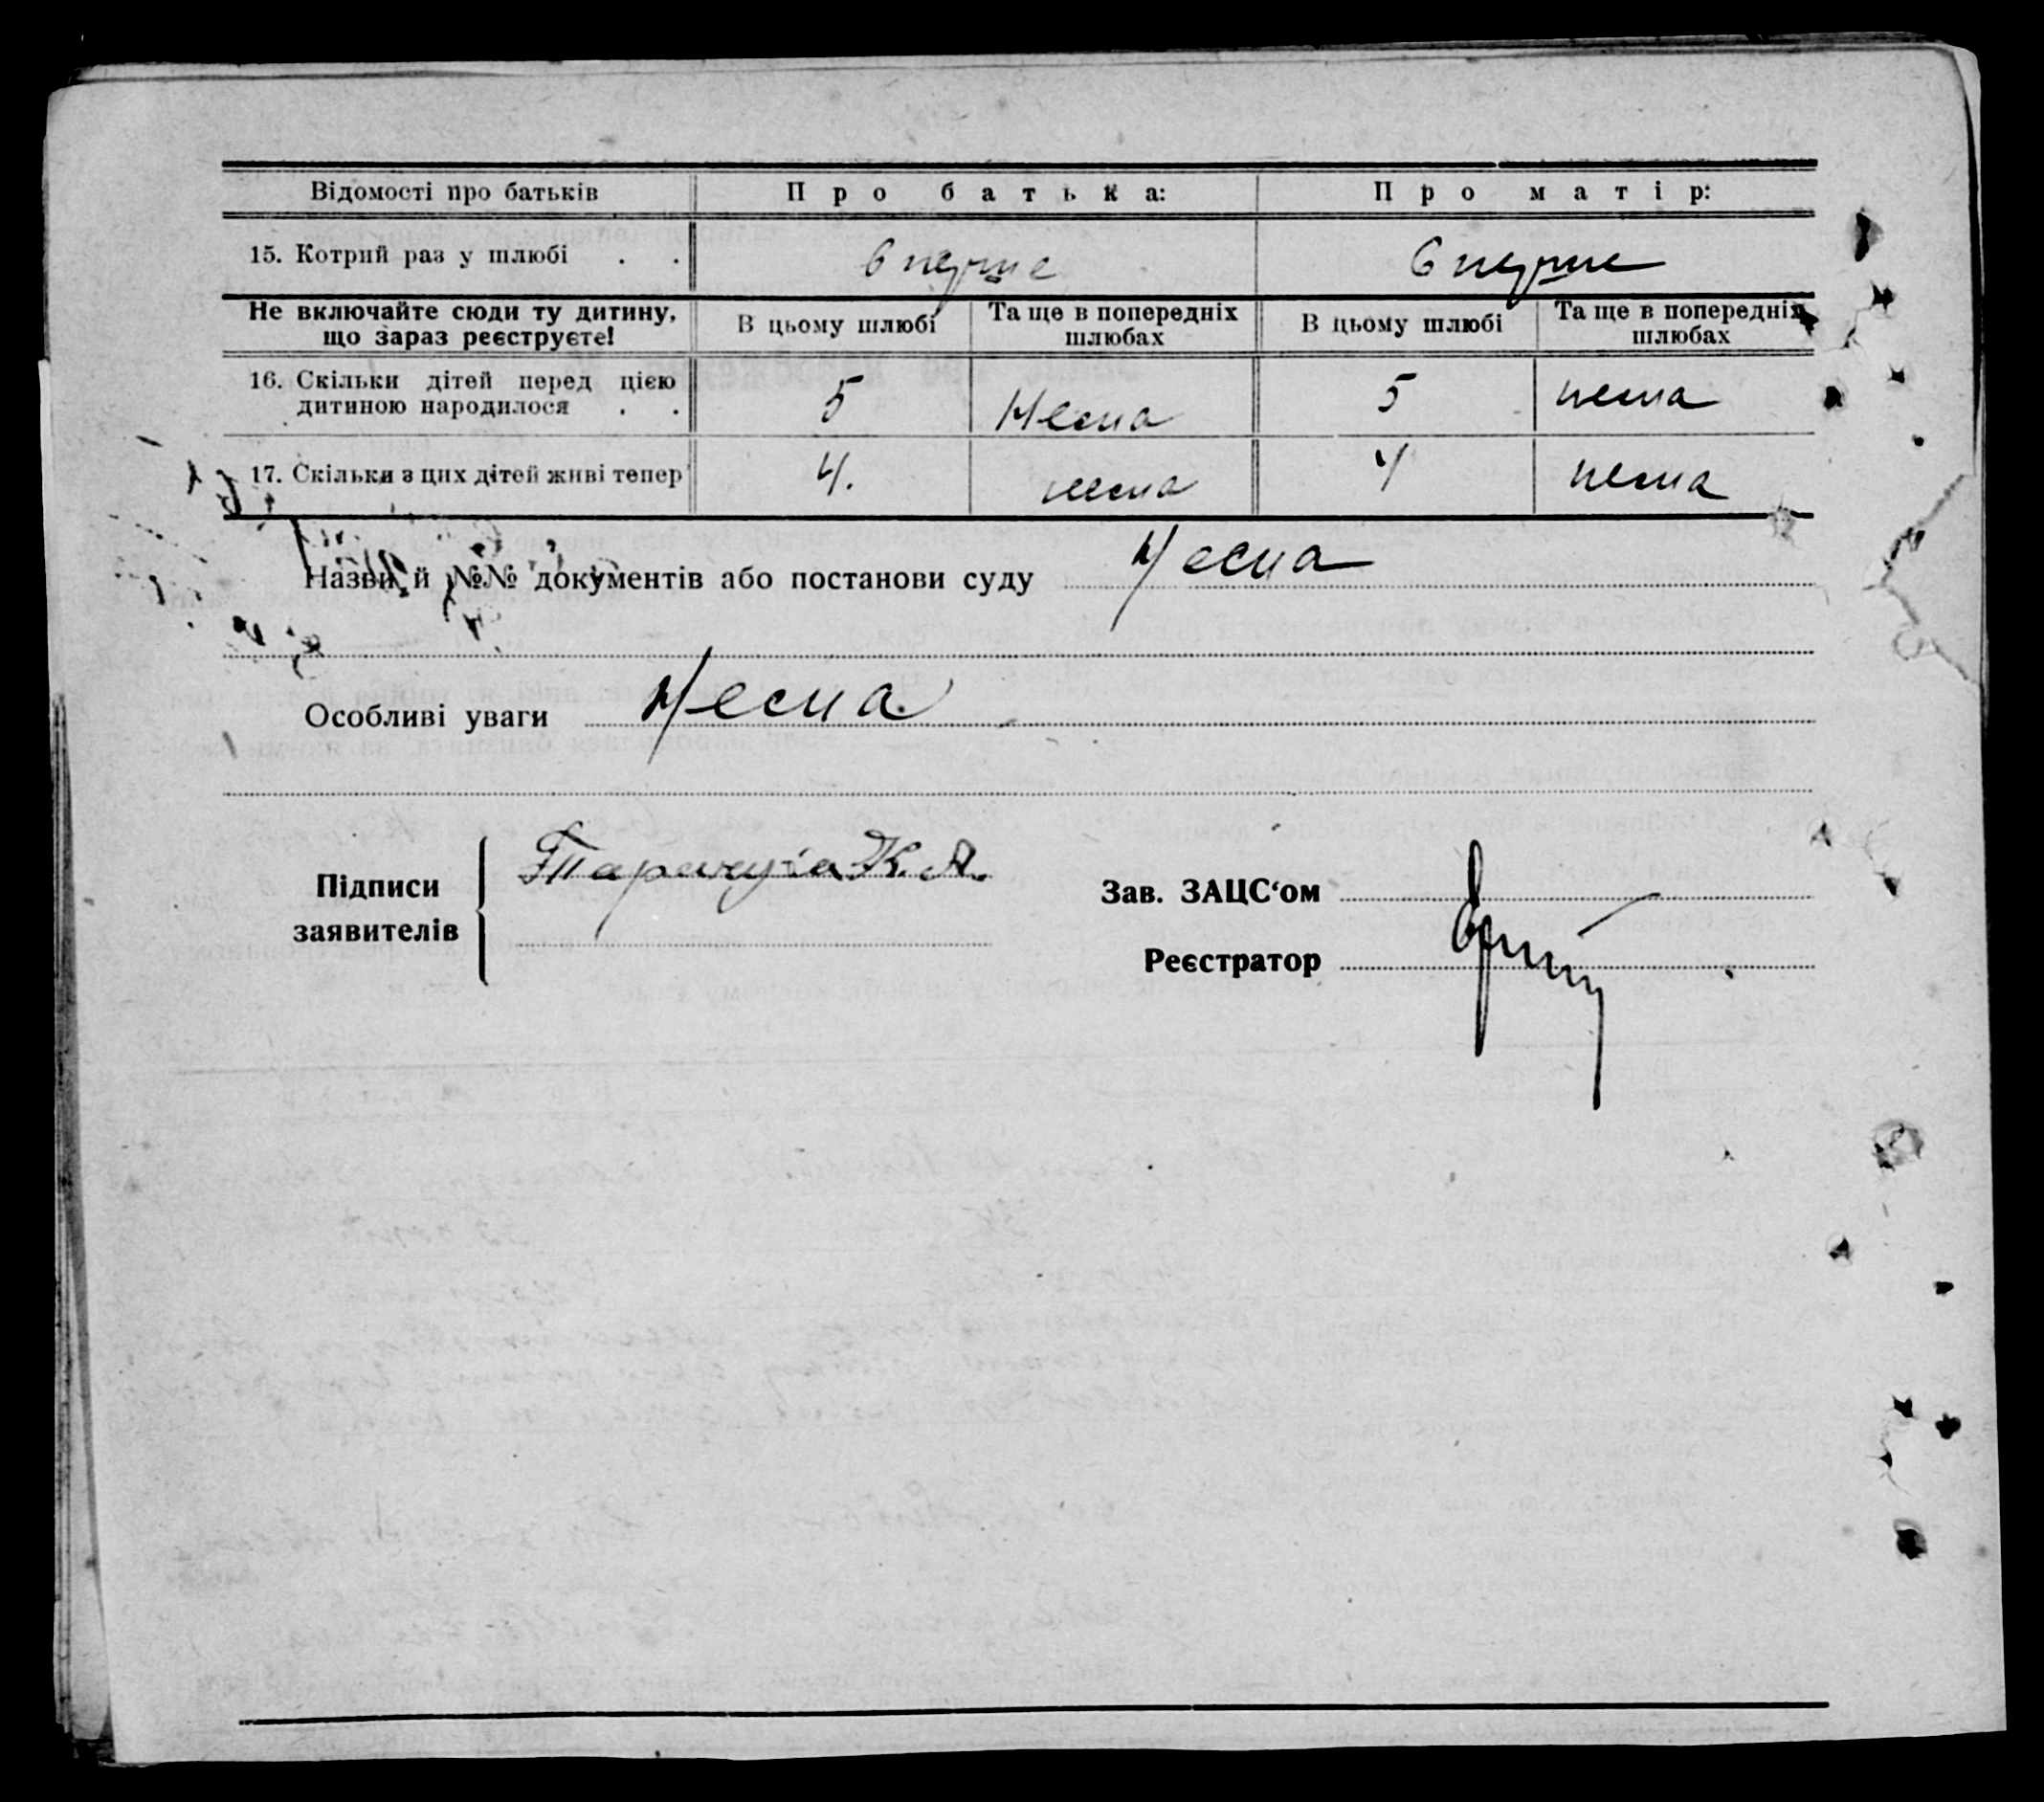 Відомості про батьків Про батька: Про матір:
15. Котрий раз у шлюбі . . вперше вперше
Не включайте сюди ту дитину, що зараз реєструєте! В цьому шлюбі Та ще в попередніх шлюбах В цьому шлюбі Та ще в попередніх шлюбах
16. Скільки дітей перед цією
дитиною народилося . . 5 Нема 5 нема
17. Скільки з цих дітей живі тепер 4. нема 4 нема
Назви й №№ документів або постанови суду Нема
Особливі уваги Нема
Підписи
заявителів К. А.
Зав. ЗАЦС‘ом
Реєстратор